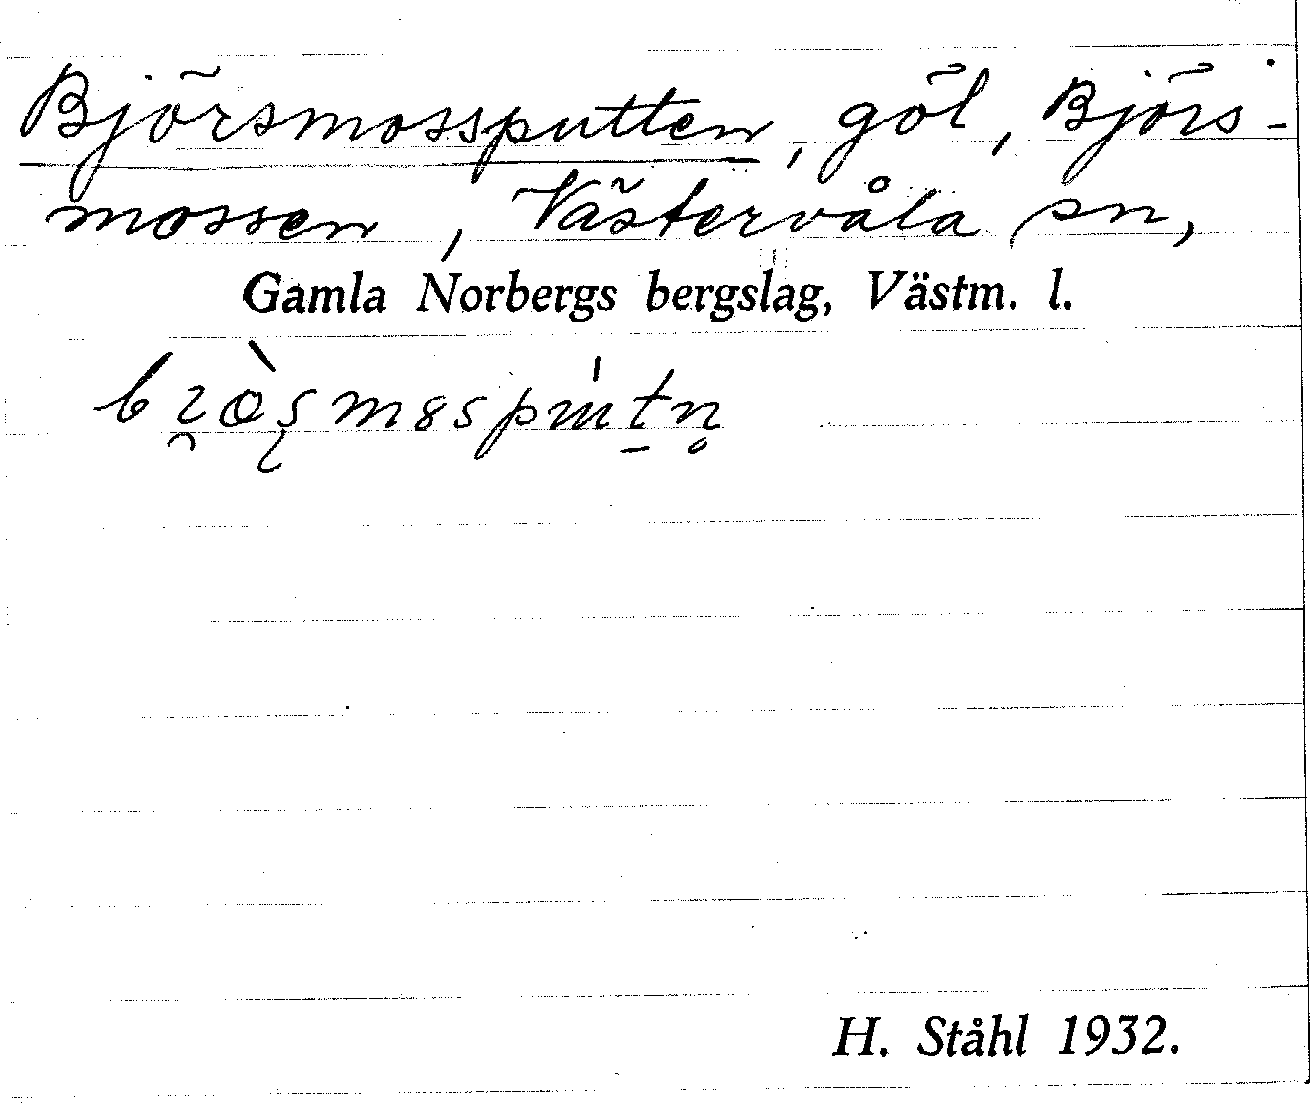 Björsmossputten, göl, Björs-
mossen, Västervåla sn,
Gamla Norbergs bergslag, Västm. l.
H. Ståhl 1932.